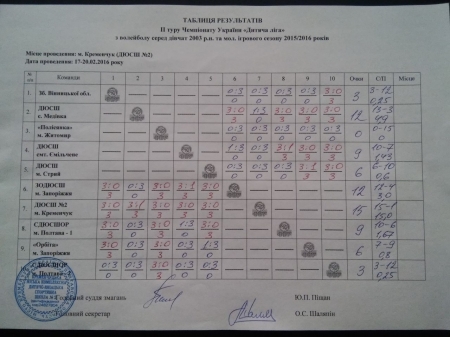 ТАБЛИЦЯ РЕЗУЛЬТАТІВ
ІІ туру Чемпіонату України «Дитяча ліга»
з волейболу серед дівчат 2003 р.н. та мол. ігрового сезону 2015/2016 років
Місце проведення: м. Кременчук (ДЮСШ №2)
Дата проведення: 17-20.02.2016 року
Команди 1 2 3 4 5 6 7 8 9 10 Очки С/П Місце
1. Зб. Вінницької обл. — — — — 0:3 0:3 0:3 0:3 3:0 3 3-12
0 0 0 0 3 0,25
2. ДЮСШ — — — — 3:0 1:3 3:0 3:0 3:0 12 13-3
с. 3 0 3 3 3
3. «Поліянка» — — — — 0:3 0:3 0:3 0:3 0:3 0 0-15
м. Житомир 0 0 0 0 0 0
4. ДЮСШ — — — — 1:3 0:3 3:1 3:0 3:0 9 10-7
смт. Ємільчине 0 0 3 3 3 1,43
5. ДЮСШ — — — — 0:3 0:3 0:3 3:1 3:0 6 6-10
м. Стрий 0 0 0 3 3 0,6
6. ЗОДЮСШ 3:0 0:3 3:0 3:1 3:0 — — — — 12 12-4
м. Запоріжжя 3 0 3 3 3 3,0
7. ДЮСШ №2 3:0 3:1 3:0 3:0 3:0 — — — — 15 15-1
м. Кременчук 3 3 3 3 3 15,0
8. СДЮСШОР 3:0 0:3 3:0 1:3 3:0 — — — — 9 10-6
м. Полтава - 1 3 0 3 0 3 1,67
9. «Орбіта» 3:0 0:3 3:0 0:3 1:3 — — — — 6 7-9
м. Запоріжжя 3 0 3 0 0 0,8
СДЮСШОР 0:3 0:3 3:0 0:3 0:3 — — — — 3 3-12
м. Полтава 0 0 3 0 0 0,25
Головний суддя змагань Ю.П. Піщан
Головний секретар О.С. Шаляпін